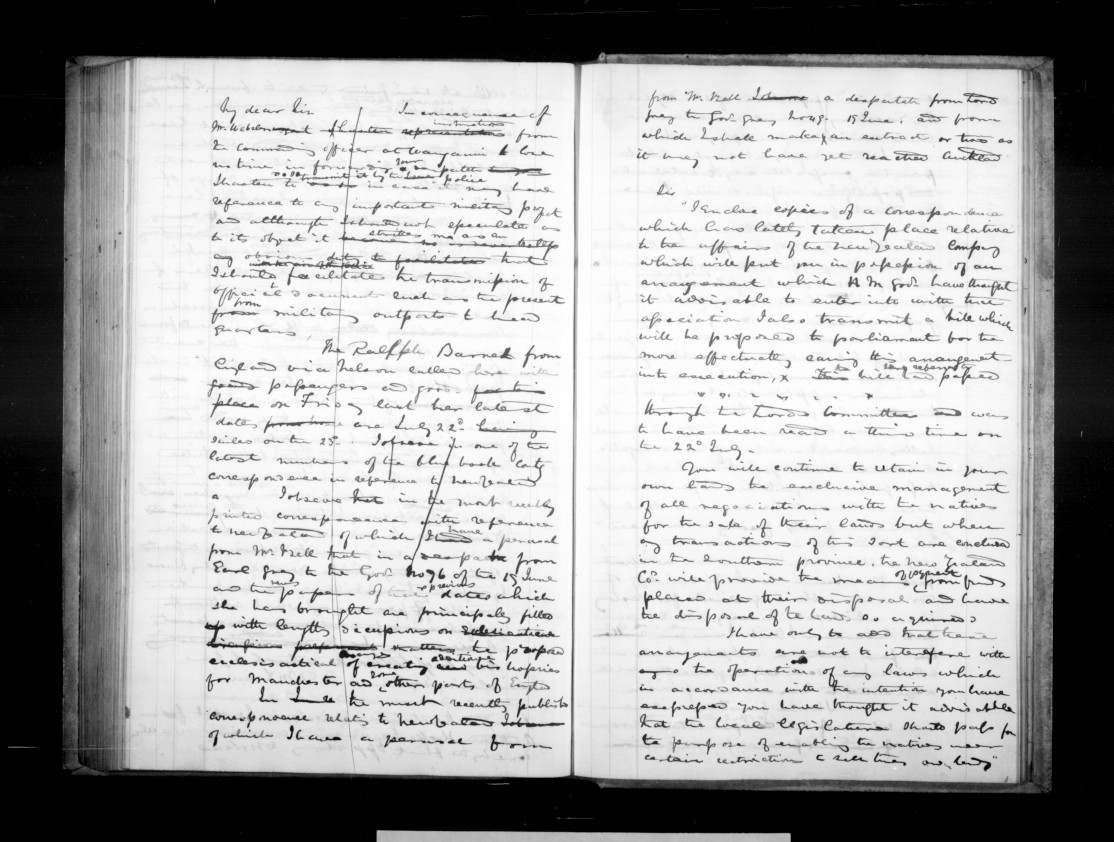 My dear Sir In consequence of
instructions
Mr Webden I hasten representations from
to commanding officer at Wanganui to lose
no time in forwarding your
I hasten to transmit it by the police in case it may have
reference to any important military project
and although I should not speculate as
to its object it strikes me as an
any obvious duty to facilitate that
I should facilitate the transmission of
official documents such as the present
from
from military outposts to head
quarters,
The Ralph Barnel from
England via Nelson called here with
passengers and goods for this
place on Friday last her latest
dates from home are July 22d having
sailed on the 25th. I observe in one of the
latest numbers of the blue book
correspondence in reference to New Zealand
a I observe that in the most recently
printed correspondence with reference
to New Zealand of which I have had a perusal
from Mr Kell that in a despatch from
Earl Grey to the Govr No 76 of the 19 June
and the papers of their previous dates which
she has brought are principally filled
up with lengthy discussions on ecclesiastical
matters the proposed
ecclesiastical of creating additional bishoprics
for Manchester and some other parts of England
In the most recently published
correspondence relating to New Zealand I observe
of which I have a perusal from
from Mr Kell I observe a despatch from Lord
Grey to Govr Grey No 49, 19 June, and from
which I shall make you an extract or two as
it may not have yet reached Auckland
Sir
"I enclose copies of a correspondence
which has lately taken place relative
to the affairs of the New Zealand Company
which will put you in possession of an
arrangement which H M Govt have thought
it advisable to enter into with that
association I also transmit a bill which
will be proposed to parliament for the
more effectually carrying this arrangement
into execution, x This the bill being referred to had passed
" " " " " "
through the Lords Committee and was
to have been read a third time on
the 22d July.
You will continue to retain in your
own hands the exclusive management
of all negociations with the natives
for the sale of their lands but when
any transactions of this sort are concluded
in the Southern province, the New Zealand
Co. will provide the means of payment from funds
placed at their disposal and have
the disposal of the lands so acquired
I have only to add that these
arrangements are not to interfere with
the operation of any laws which
in accordance with the intention you have
expressed you have thought it advisable
that the local legislature should pass for
the purpose of enabling the natives under
certain restriction to sell their own lands"